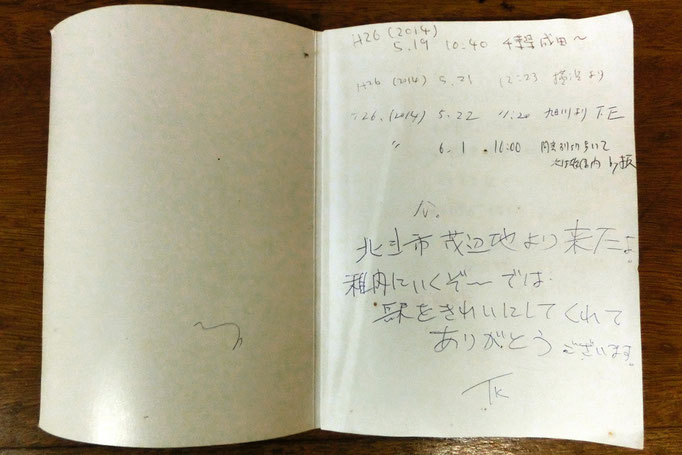 H26 (2014)
5.19 10:40 千葉 成田〜
H26 (2014) 5.21 12:23 横浜より
〃26.(2014) 5.22 11:20 旭川より
〃 6.1 16:00
北斗市 茂辺地より来たよ
稚内にいくぞ〜では
駅をきれいにしてくれて
ありがとう ございます
TK